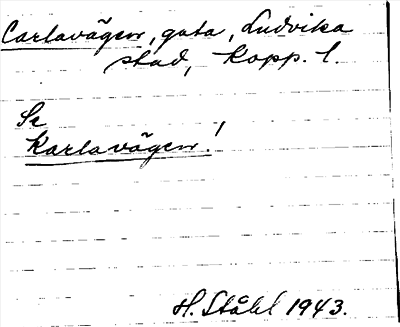 Carlavägen, gata, Ludvika
stad, Kopp. l.
Se
Karlavägen!
H. Ståhl 1943.